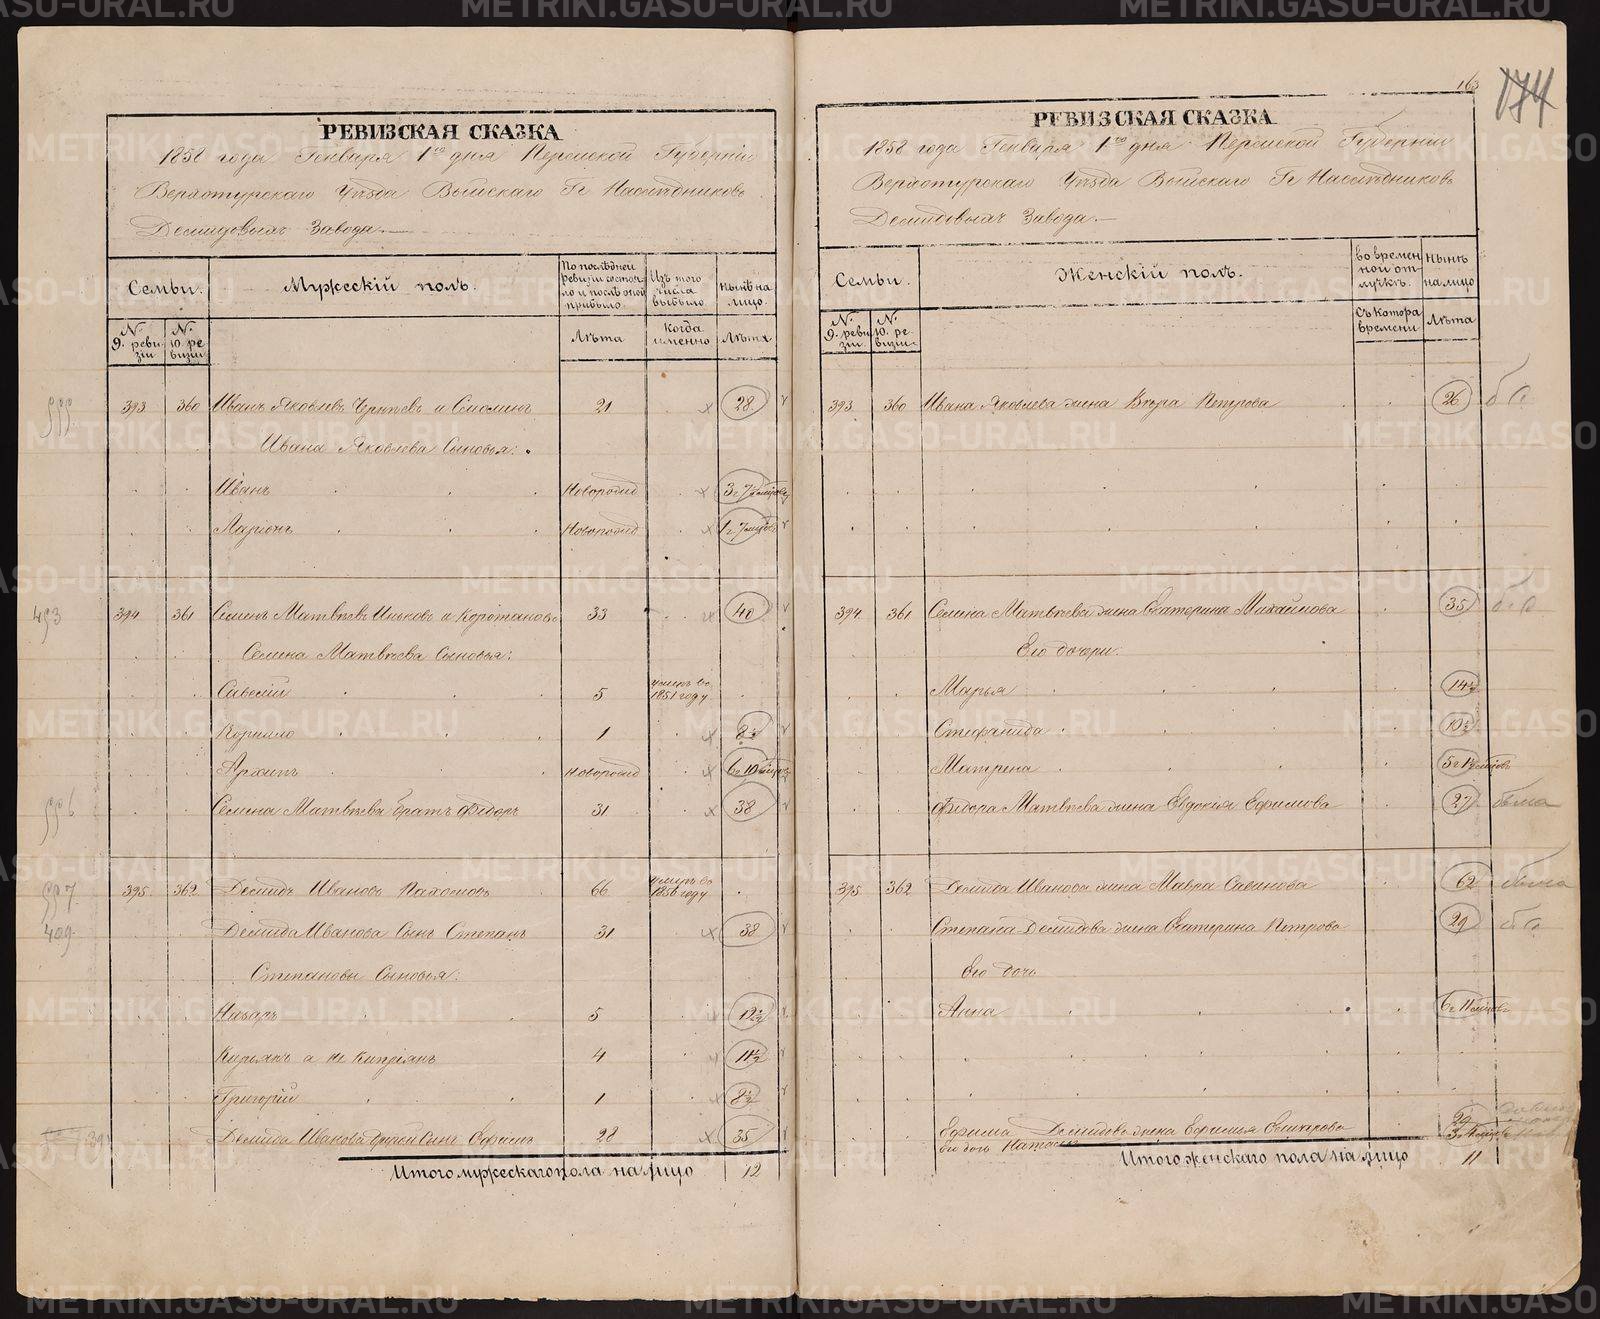 163
174
РЕВИЗСКАЯ СКАЗКА
1858 года Генваря 1го дня Пермской Губерніи
Верхотурскаго Уѣзда Выйскаго Гг Наслѣдниковъ
Демидовыхъ Завода.
Семьи.
Мужескій полъ.
По послѣдней ревизіи состояло и послѣ оной прибыло
Изъ того числа выбыло
Нынѣ на лицо.
№. 9. ревизіи
№. 10. ревизіи
Лѣта
Когда именно
Лѣта
393 360 Иванъ Яковлевъ и Смолинъ 21 28
Ивана Яковлева Сыновья:
Иванъ Новорожд
Ларіонъ Новорожд 1 г. 7 мцовъ
493 394 361 Семенъ Матвѣевъ а Коротановъ 33 40
Семена Матвѣева Сыновья:
Савелій 5 умеръ въ 1851 году
Корнило 1 8½
Архипъ Новорожд
Семена Матвѣева братъ Ѳедоръ 31 38
395 362 Демидъ Ивановъ Пахомовъ 66 умеръ въ 1856 году
409 Демида Иванова Сынъ Степанъ 31 38
Степановы Сыновья:
Назаръ 5 12½
Кирьянъ а не Кипріянъ 4 11½
Григорій 1 8½
Демида Иванова другой Сынъ Ефимъ 28 35
Итого мужескаго пола на лицо 12
РЕВИЗСКАЯ СКАЗКА
1858 года Генваря 1го дня Пермской Губерніи
Верхотурскаго Уѣзда Выйскаго Гг Наслѣдниковъ
Демидовыхъ Завода.
Семьи.
Женскій полъ.
во временной отлучкѣ.
Нынѣ на лицо
№. 9. ревизіи
№. 10. ревизіи
Съ котора времени
Лѣта
393 360 Ивана Яковлева жена Вѣра Петрова 26
394. 361 Семена Матвѣева жена Екатерина Михайлова 35
Его дочери:
Марья 14½
Стефанида 10½
Матрена
Ѳедора Матвѣева жена Евдокія Ефимова 27
395. 362 Демида Иванова жена Мавра Савинова 62
Степана Демидова жена Екатерина Петрова 29
Его дочь
Анна 6 г 11 мцовъ
Ефима Демидова жена 29
Его дочь
Итого женскаго пола на лицо 11
METRIKI.GASO-URAL.RU